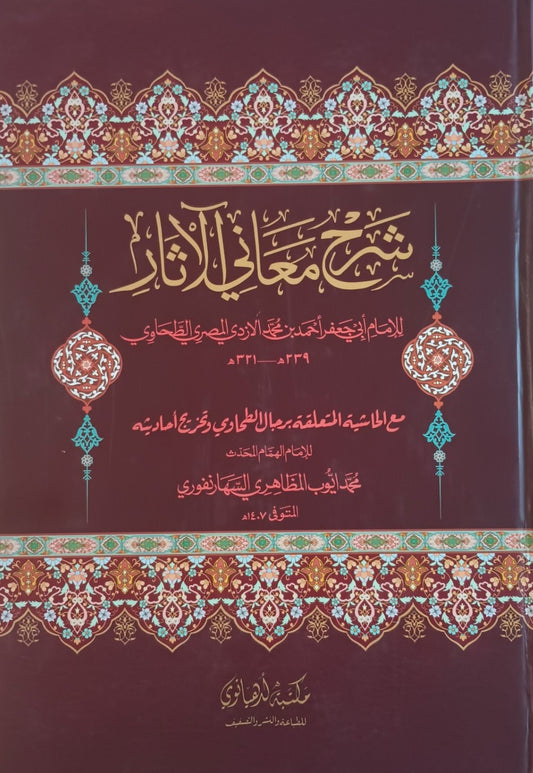 شرح معاني الآثار
للإمام أبي جعفر أحمد بن محمد الازدي المصري الطحاوي
٢٣٩ھ — ٣٢١ھ
مع الحاشية المتعلقة برجال الطحاوي وتخريج أحاديثه
للإمام الهمام المحدث
محمد ايوب المظاهري السهارنفوري
المتوفى ١٤٠٧ھ
مكتبة لدهيانوي
للطباعة والنشر والتصفيف